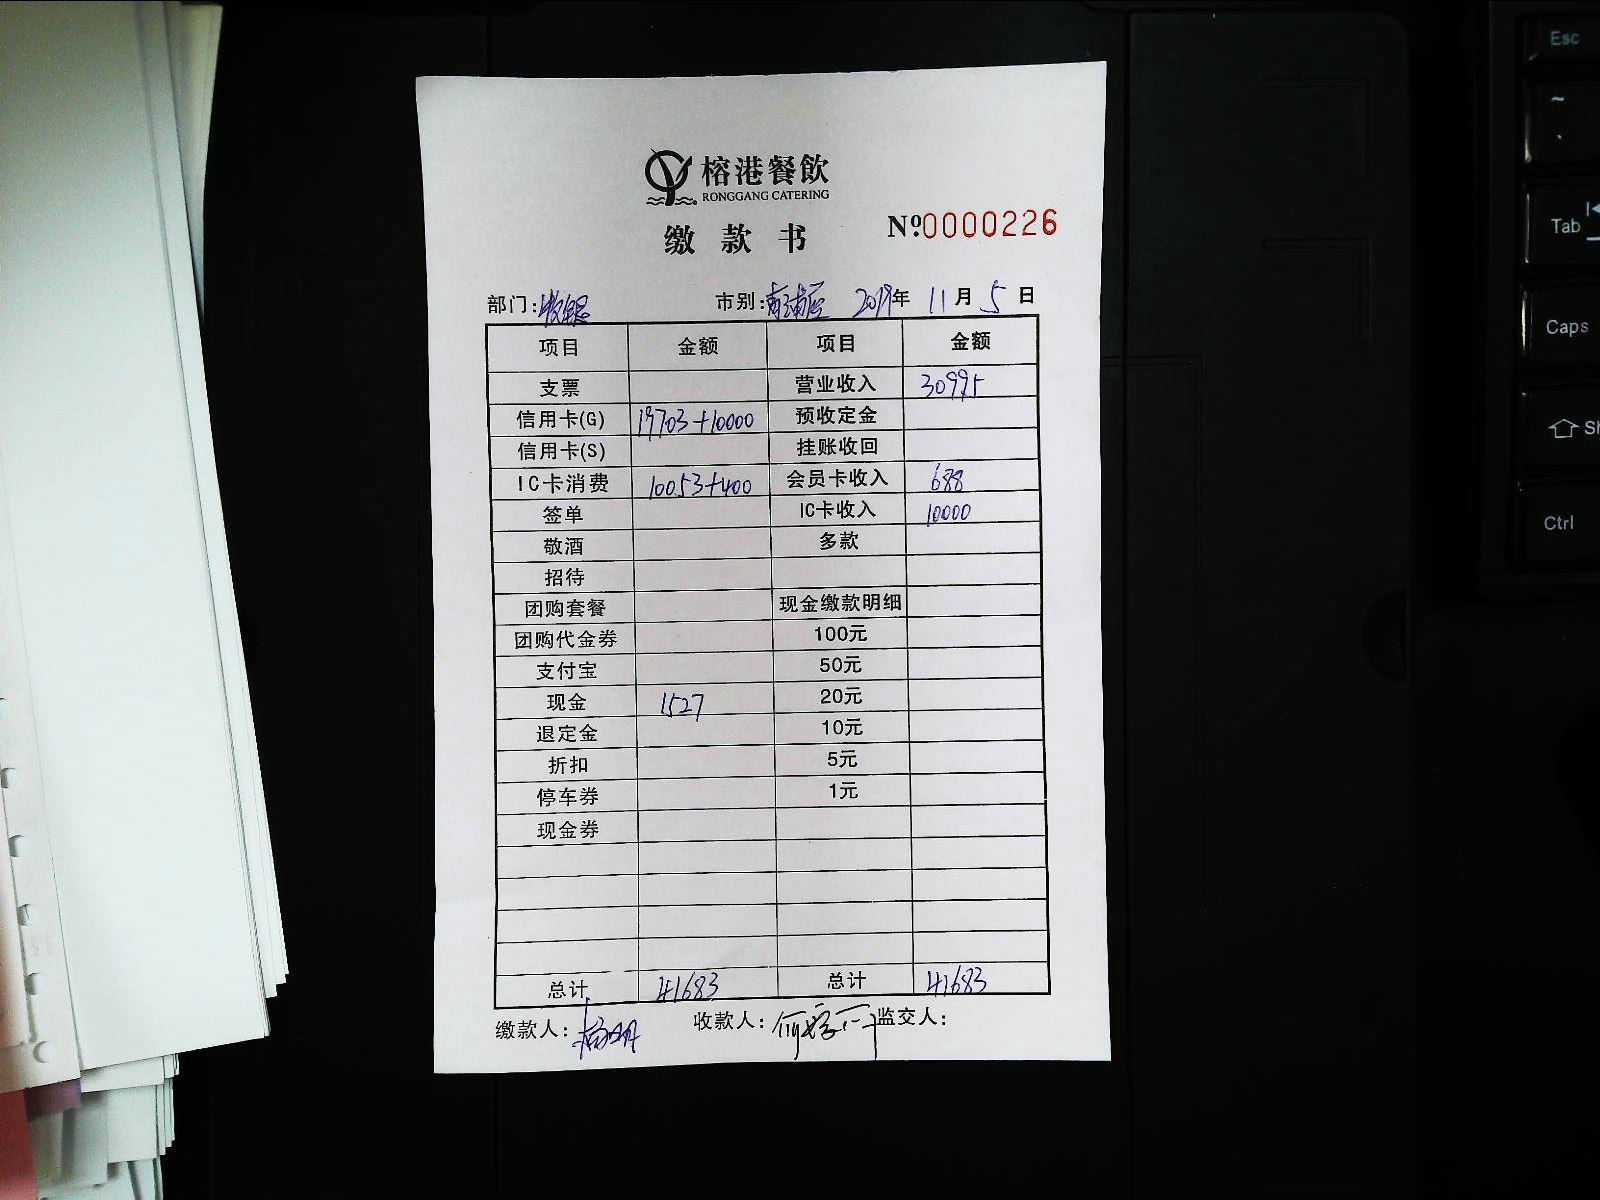 榕港餐飲
RONGGANG CATERING
缴款书 Nº0000226
部门:收银 市别:青浦店 2019年 11月 5日
项目 金额 项目 金额
支票 营业收入 30995
信用卡(G) 19703+10000 预收定金
信用卡(S) 挂账收回
IC卡消费 10053+400 会员卡收入 688
签单 IC卡收入 10000
敬酒 多款
招待
团购套餐 现金缴款明细
团购代金券 100元
支付宝 50元
现金 1527 20元
退定金 10元
折扣 5元
停车券 1元
现金券
总计 41683 总计 41683
缴款人: 收款人: 监交人:
Esc
~
Tab
Caps
Sh
Ctrl